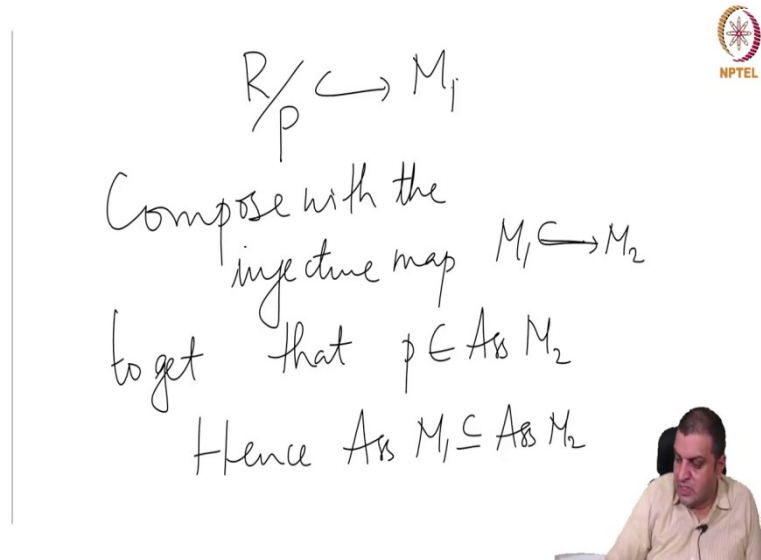 NPTEL
R/p ↪ M₁
Compose with the
injective map M₁ ↪ M₂
to get that p ∈ Ass M₂
Hence Ass M₁ ⊆ Ass M₂